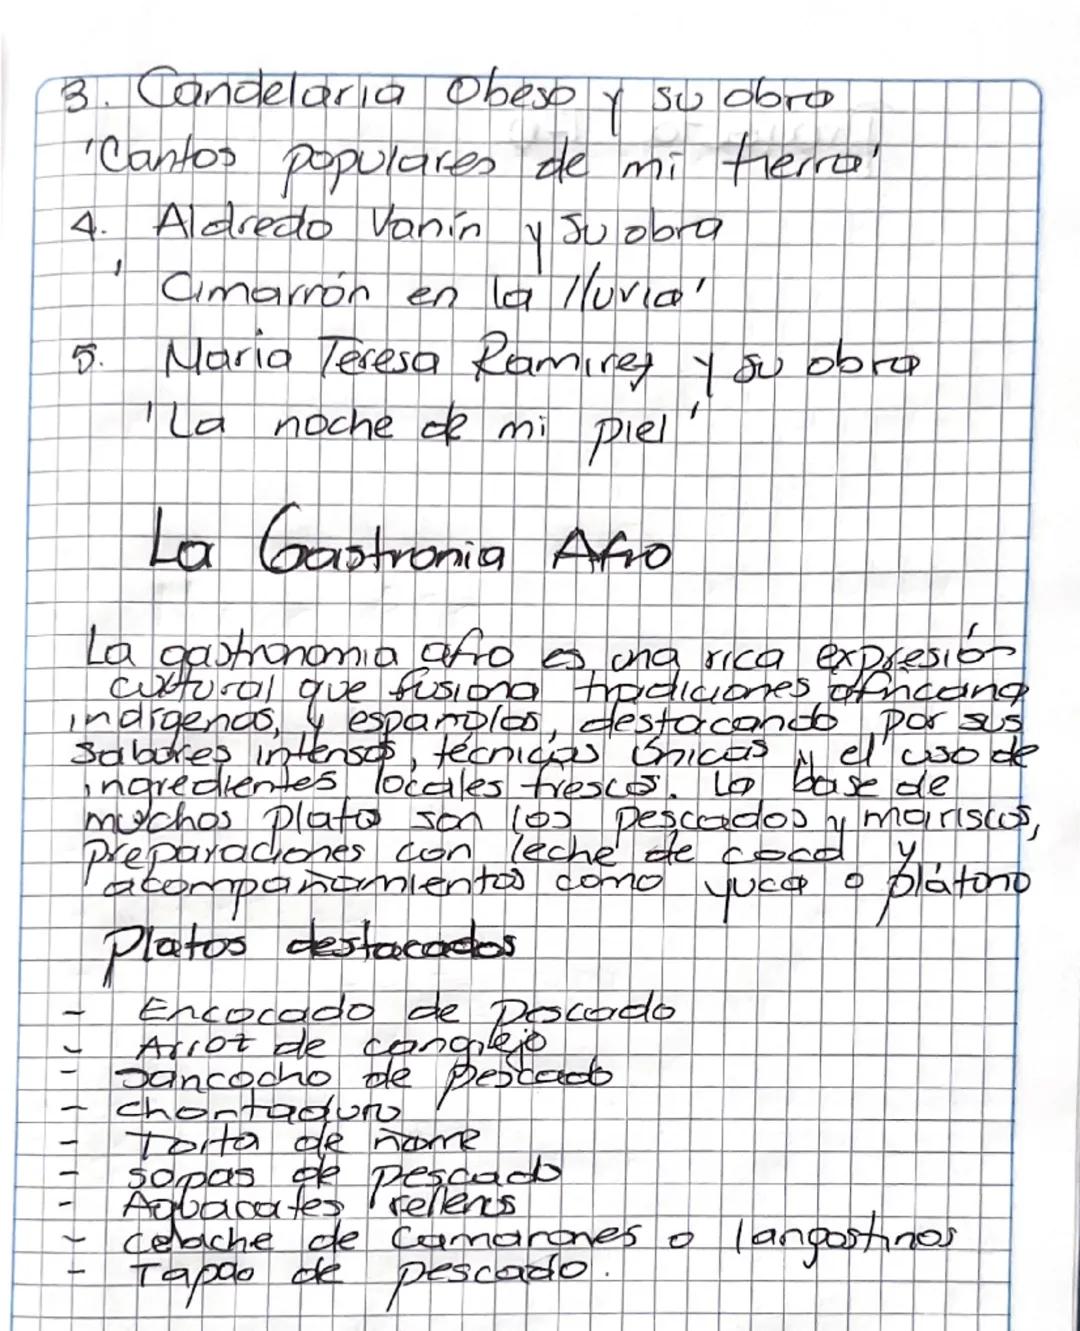 3. Candelaria Obeso y su obra
'Cantos populares de mi tierra'
4. Aldredo Vanín y su obra
' Cimarrón en la lluvia'
5. Maria Teresa Ramirez y su obra
'La noche de mi piel'
La Gastronia Afro
La gastronomia afro es una rica expresión
cultural que fusiona tradiciones africana
indígenas, y españolas, destacando por sus
sabores intensos, técnicas únicas y el uso de
ingredientes locales frescos. La base de
muchos plato son los pescados y mariscos,
preparaciones con leche de coco y
acompañamientos como yuca o plátono
Platos destacados
- Encocado de Pescado
- Arroz de cangrejo
- Sancocho de pescado
- Chontaduro
- Torta de ñame
- sopas de pescado
- Aguacates rellens
- cebiche de Camarones o langostinos
- Tapao de pescado.